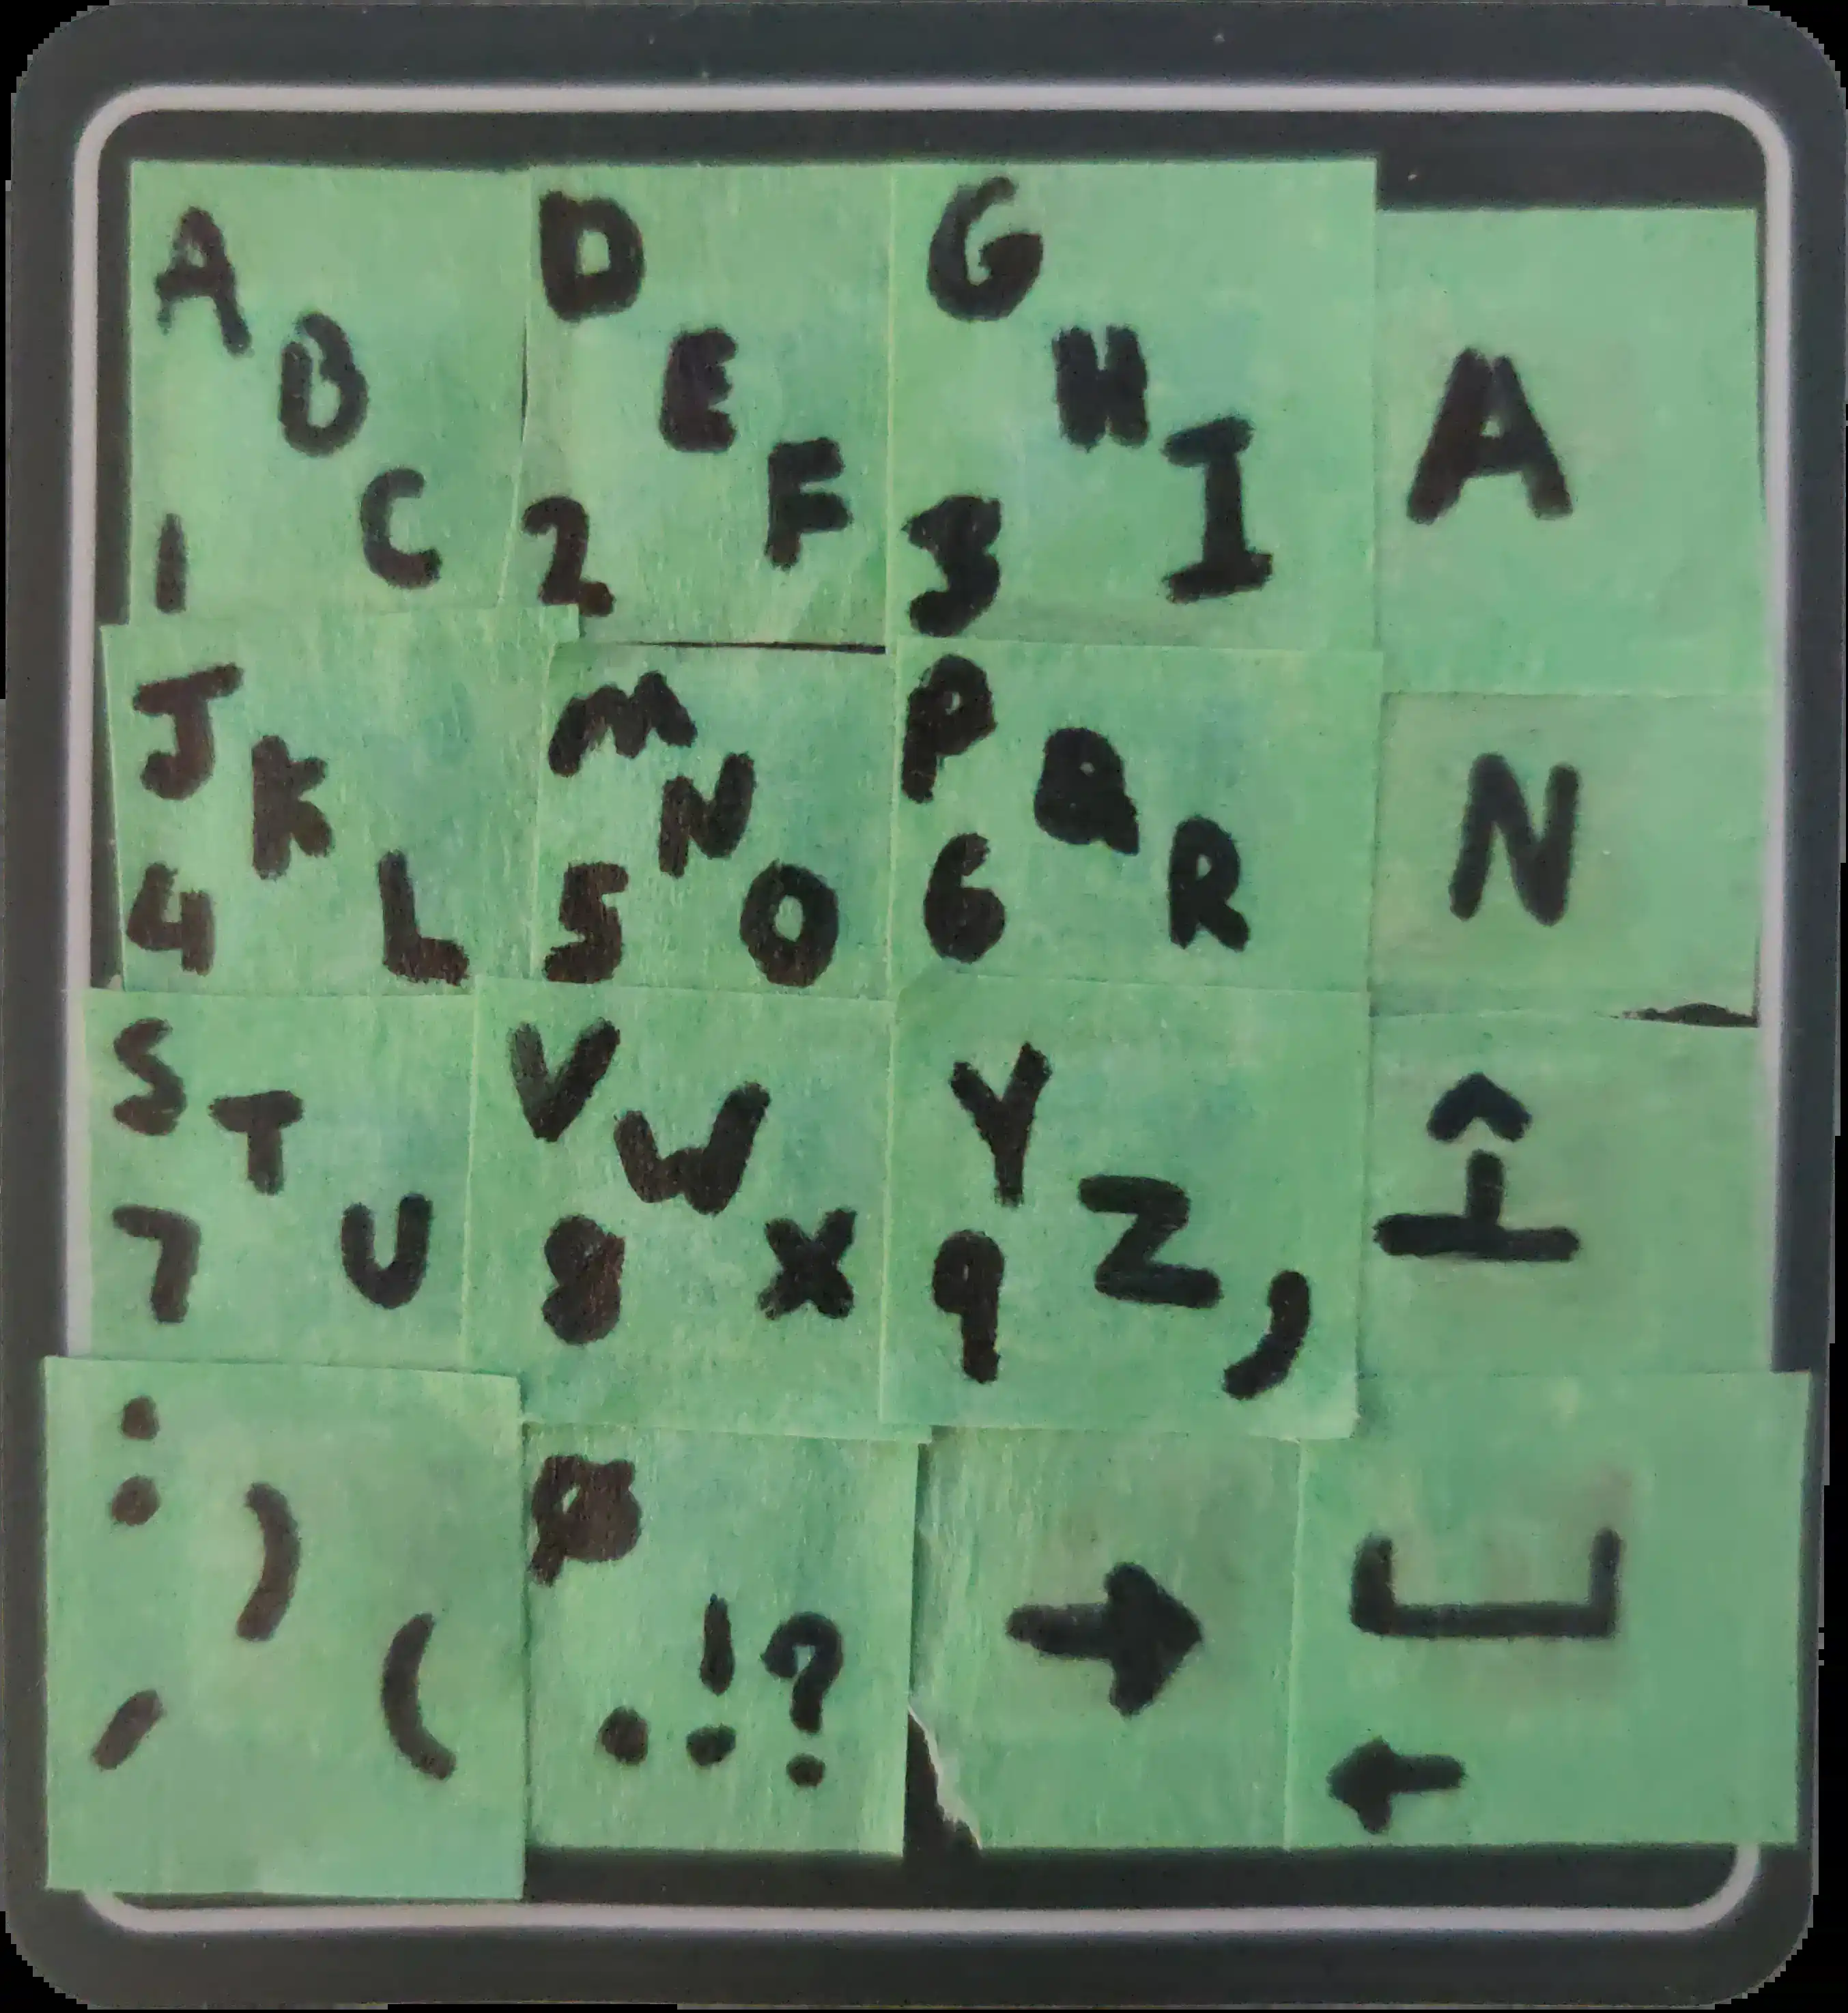 A B C 1
D E F 2
G H I 3
A
J K L 4
M N O 5
P Q R 6
N
S T U 7
V W X 8
Y Z , 9
: ) ( '
0 . ! ?
→
←